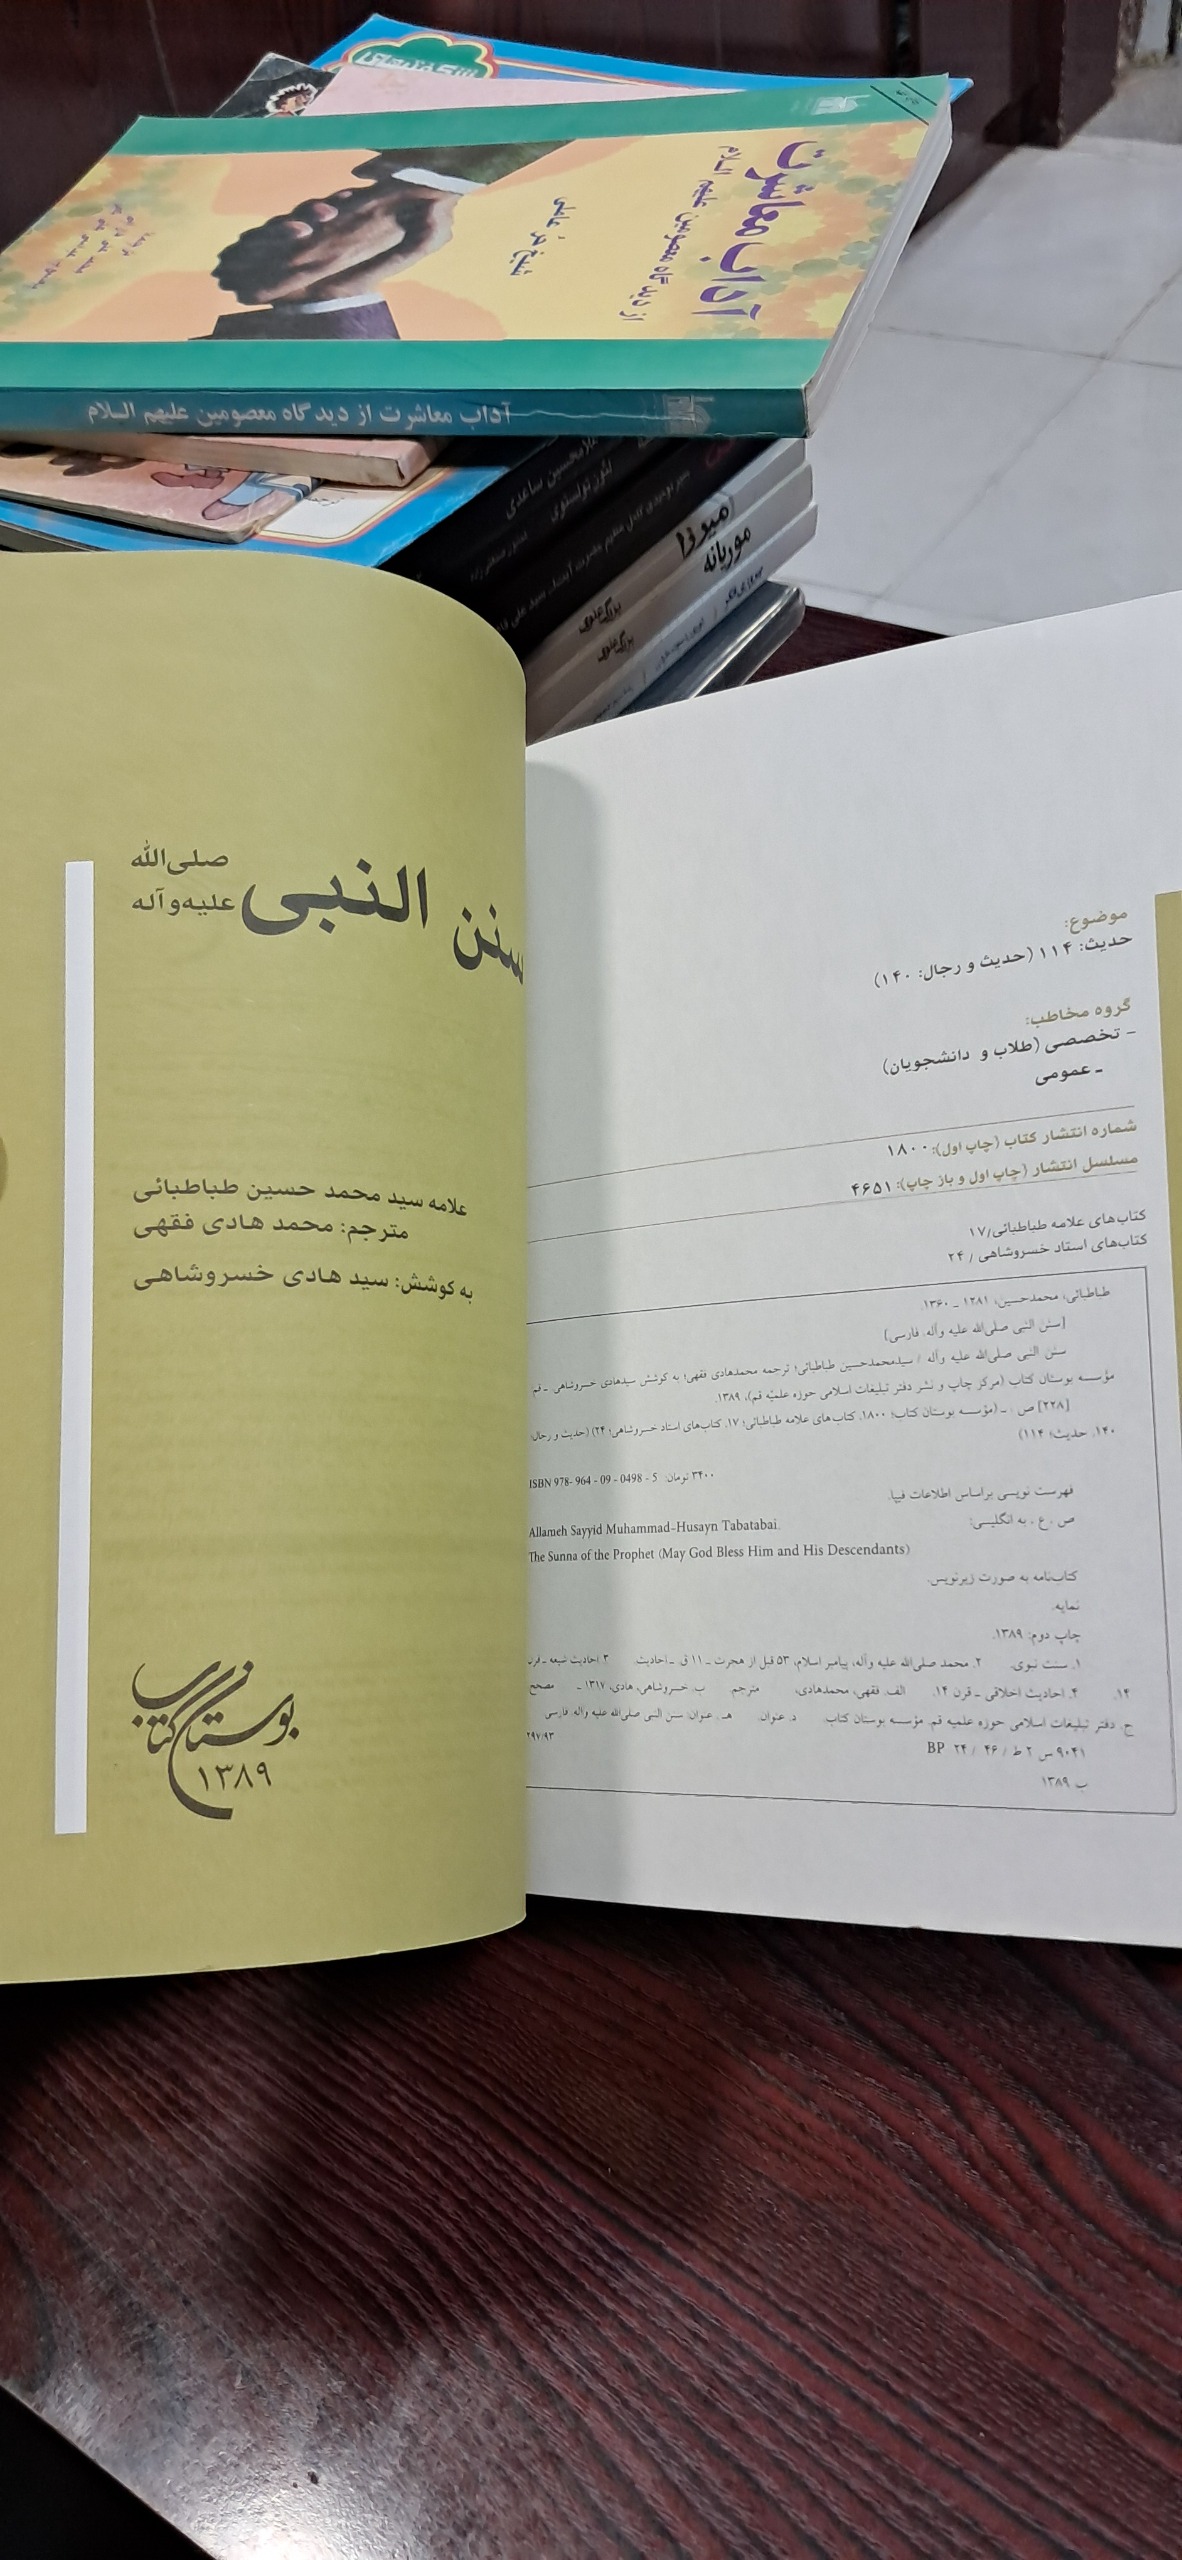 آداب معاشرت
از دیدگاه معصومین علیهم السلام
شیخ حر عاملی
آداب معاشرت از دیدگاه معصومین علیهم السلام
غلامحسین ساعدی
لئون تولستوی
میرزا
بزرگ علوی
موریانه
بزرگ علوی
سنن النبی
صلی‌الله
علیه‌وآله
علامه سید محمد حسین طباطبائی
مترجم: محمد هادی فقهی
به کوشش: سید هادی خسروشاهی
بوستان کتاب
۱۳۸۹
موضوع:
حدیث: ۱۱۴ (حدیث و رجال: ۱۴۰)
گروه مخاطب:
- تخصصی (طلاب و دانشجویان)
ـ عمومی
شماره انتشار کتاب (چاپ اول): ۱۸۰۰
مسلسل انتشار (چاپ اول و باز چاپ): ۴۶۵۱
کتاب‌های علامه طباطبائی/۱۷
کتاب‌های استاد خسروشاهی / ۲۴
طباطبائی، محمدحسین، ۱۲۸۱ ـ ۱۳۶۰.
[سنن النبی صلی‌الله علیه وآله. فارسی]
سنن النبی صلی‌الله علیه وآله / سیدمحمدحسین طباطبائی؛ ترجمه محمدهادی فقهی؛ به کوشش سیدهادی خسروشاهی. ـ قم
مؤسسه بوستان کتاب (مرکز چاپ و نشر دفتر تبلیغات اسلامی حوزه علمیّه قم)، ۱۳۸۹.
[۲۲۸] ص. ـ (مؤسسه بوستان کتاب؛ ۱۸۰۰. کتاب‌های علامه طباطبائی؛ ۱۷. کتاب‌های استاد خسروشاهی؛ ۲۴) (حدیث و رجال؛
۱۴۰. حدیث؛ ۱۱۴)
ISBN 978- 964 - 09 - 0498 - 5 ۳۴۰۰ تومان
فهرست نویسی براساس اطلاعات فیپا.
ص. ع. به انگلیسی:
Allameh Sayyid Muhammad-Husayn Tabatabai.
The Sunna of the Prophet (May God Bless Him and His Descendants)
کتاب‌نامه به صورت زیرنویس.
نمایه.
چاپ دوم: ۱۳۸۹.
۱. سنت نبوی. ۲. محمد صلی‌الله علیه وآله، پیامبر اسلام، ۵۳ قبل از هجرت ـ ۱۱ ق. ـ احادیث. ۳. احادیث شیعه ـ قرن
۱۴. ۴. احادیث اخلاقی ـ قرن ۱۴. الف. فقهی، محمدهادی، مترجم. ب. خسروشاهی، هادی، ۱۳۱۷ ـ مصحح
ج. دفتر تبلیغات اسلامی حوزه علمیه قم. مؤسسه بوستان کتاب. د. عنوان. هـ. عنوان: سنن النبی صلی‌الله علیه وآله. فارسی
۲۹۷/۹۳ BP ۲۴ / ۴۶ / ط ۲ س ۹۰۴۱
ب ۱۳۸۹